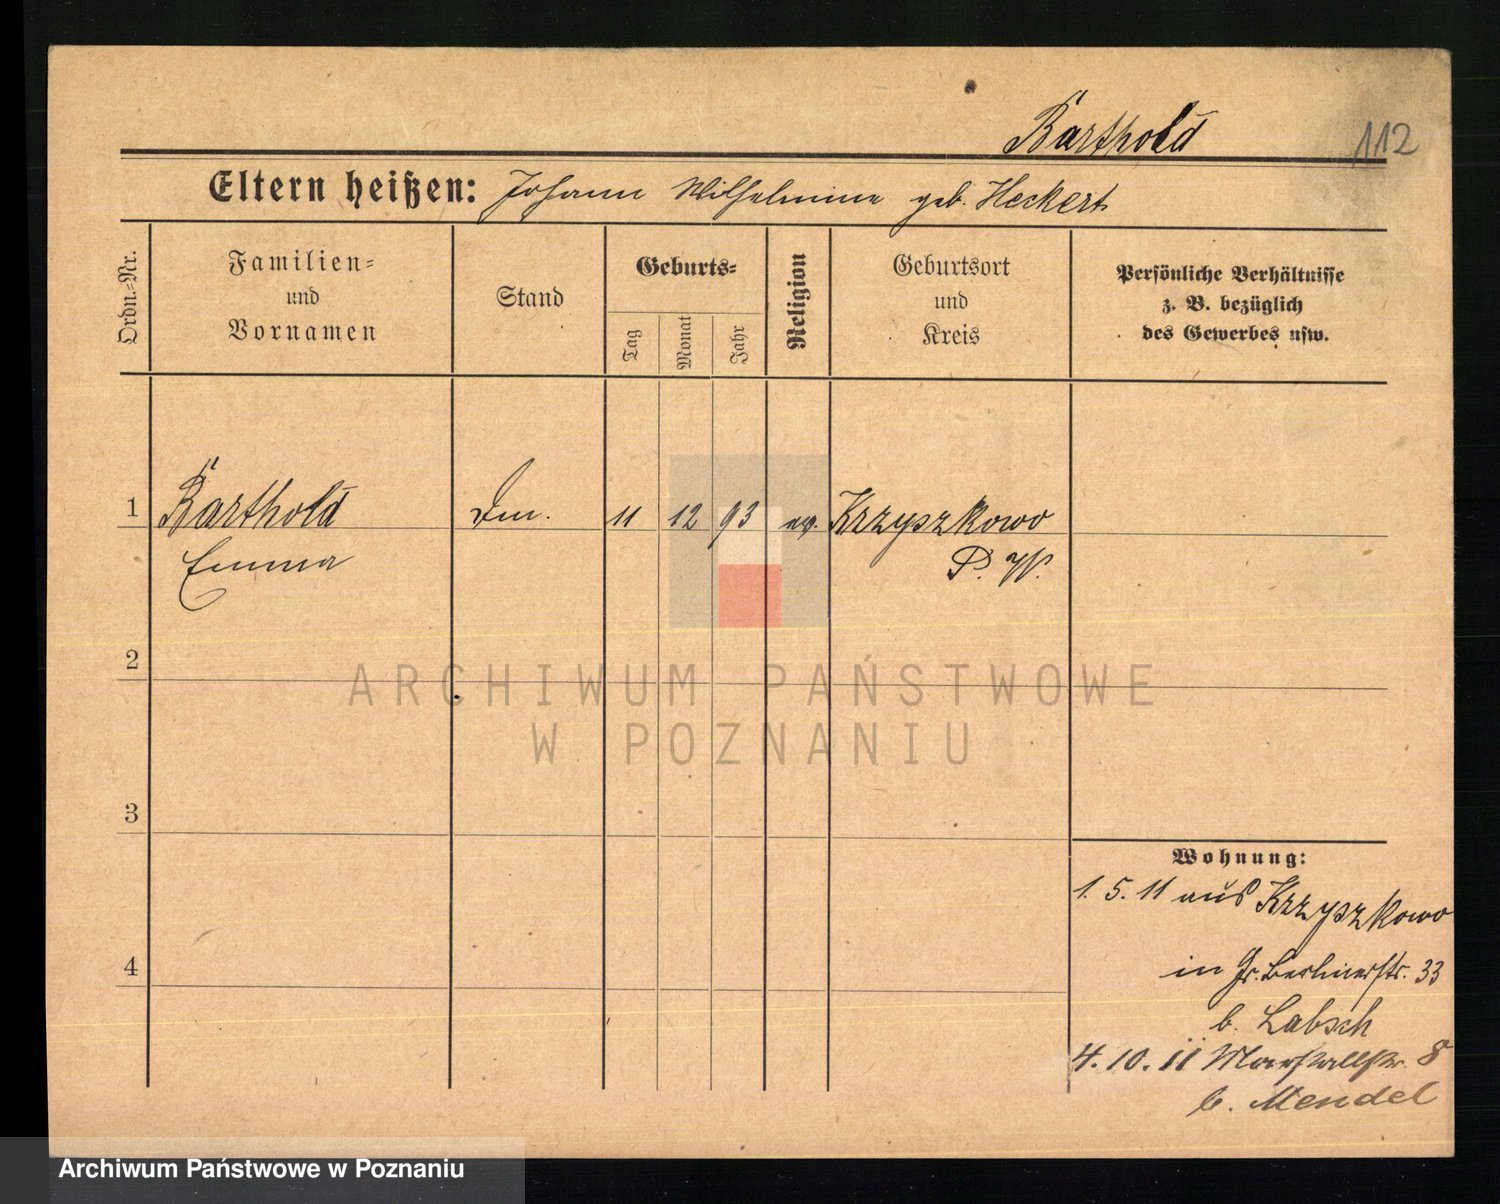 Barthold 112
Eltern heißen: Johann Wilhelmine geb. Heckert
Ordn.=Nr.
Familien=
und
Vornamen
Stand
Geburts=
Tag
Monat
Jahr
Religion
Geburtsort
und
Kreis
Persönliche Verhältnisse
z. B. bezüglich
des Gewerbes usw.
1 Barthold 11 12 93 ev. Krzyszkowo
Emma P. W.
2
ARCHIWUM PAŃSTWOWE
W POZNANIU
3
Wohnung:
1. 5. 11 aus Krzyszkowo
4
in Gr. Berlinerstr. 33
b. Labsch
4. 10. 11 Marstallstr. 8
b. Mendel
Archiwum Państwowe w Poznaniu